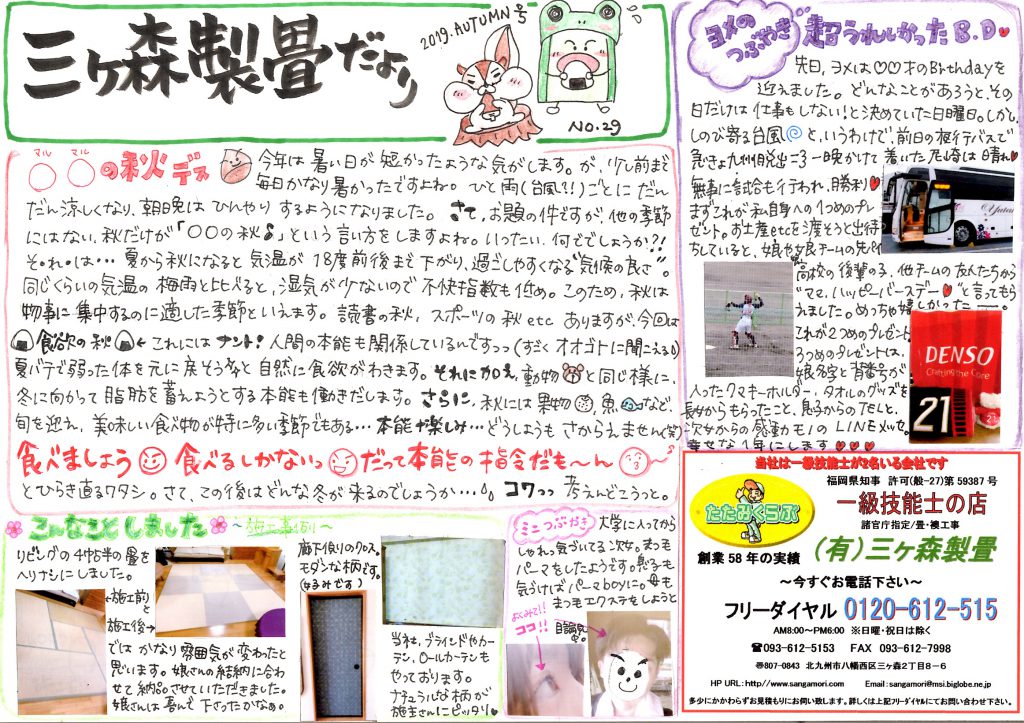 三ヶ森製畳だより
2019.AUTUMN号
No.29
マル マル
〇〇の秋デス
今年は暑い日が短かったような気がします。が、少し前まで
毎日かなり暑かったですよね。ひと雨(台風?!)ごとにだん
だん涼しくなり、朝晩はひんやりするようになりました。さて、お題の件ですが、他の季節
にはない、秋だけが「〇〇の秋♪」という言い方をしますよね。いったい、何ででしょうか?!
それは… 夏から秋になると気温が18度前後まで下がり、過ごしやすくなる"気候の良さ"。
同じくらいの気温の梅雨と比べると、湿気が少ないので不快指数も低め。このため、秋は
物事に集中するのに適した季節といえます。読書の秋、スポーツの秋etcありますが、今回は
食欲の秋 ← これにはナント!人間の本能も関係しているんですっっ(すごくオオゴトに聞こえる)
夏バテで弱った体を元に戻そうなと自然に食欲がわきます。それに加え、動物と同じ様に、
冬に向かって脂肪を蓄えようとする本能も働きだします。さらに、秋には果物、魚など、
旬を迎え、美味しい食べ物が特に多い季節でもある…本能や楽しみ…どうしようもさからえません(笑)
食べましょう 食べるしかないっ だって本能の指令だも〜ん
とひらき直るワタシ。さて、この後はどんな冬が来るのでしょうか… コワっっ 考えんどこうっと。
ヨメのつぶやき
超うれしかったB.D♥
先日、ヨメは♡♡才のBirthdayを
迎えました。どんなことがあろうと、その
日だけは仕事もしない!と決めていた日曜日。しかし、
しのび寄る台風 と、いうわけで前日の夜行デバスで
急きょ九州脱出 一晩かけて着いた尼崎は晴れ♥
無事に試合も行われ、勝利♥
まずこれが私自身への1つめのプレ
ゼント。お土産etcを渡そうと出待
ちしていると、娘や娘チームの先輩
高校の後輩の子、他チームの友人たちから
"ママ、ハッピーバースデー♥"と言ってもら
えました。めっちゃ嬉しかったーー。
これが2つめのプレゼント
3つめのプレゼントは、
娘の名字と背番号が
入ったクマキーホルダー、タオルのグッズを
長女からもらったこと、息子からのTELと、
次女からの感動モノのLINEメッセ。
幸せな1年にします♥♥♥
DENSO
Crafting the Core
21
こんなことしました
〜施工事例〜
リビングの4帖半の畳を
ヘリナシにしました。
←施工前と
施工後→
ではかなり雰囲気が変わったと
思います。娘さんの結納に合わ
せて納品させていただきました。
娘さんは喜んで下さったかなぁ。
廊下、周りのクロス。
モダンな柄です。
(なるみです)
当社、ブラインドやカー
テン、ロールカーテンも
やっております。
ナチュラルな柄が
施主さんにピッタリ♥
ミニつぶやき
大学に入ってから
しゃれっ気づいてる次女。まつも
パーマをしたようです。息子も
気づけばパーマboyに。母も
まつもエクステをしようと
よくみて!!
ココ!!
目論み中。
当社は一級技能士が2名いる会社です
たたみくらぶ
創業58年の実績
福岡県知事 許可(般-27)第59387号
一級技能士の店
諸官庁指定/畳・襖工事
(有)三ヶ森製畳
〜今すぐお電話下さい〜
フリーダイヤル 0120-612-515
AM8:00〜PM6:00 ※日曜・祝日は除く
☎093-612-5153 FAX 093-612-7998
〠807-0843 北九州市八幡西区三ヶ森2丁目8-6
HP URL:http//www.sangamori.com Email:sangamori@msi.biglobe.ne.jp
多少にかかわらずお見積もりにお伺い致します。詳しくは上記フリーダイヤルにてお問い合わせ下さい。